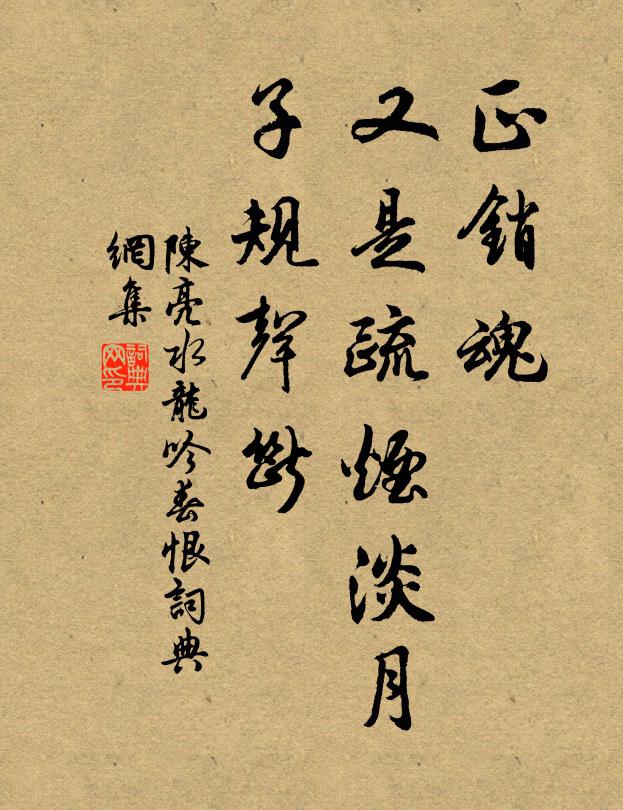 正銷魂
又是疏煙淡月
子規聲斷
陳亮水龍吟春恨詞典
網集
詞典
网印